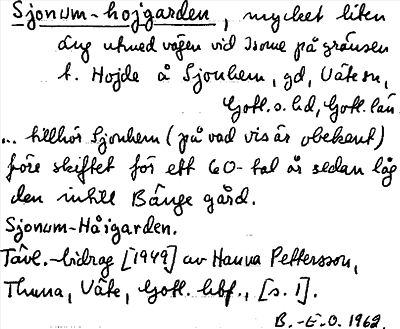 Sjonum-hojgarden, mycket liten
äng utmed vägen vid Isome på gränsen
t. Hojde å Sjonhem, gd, Väte sn,
Gotl. s. hd, Gotl. län.
... tillhör Sjonhem (på vad vis är obekant)
före skiftet för ett 60-tal år sedan låg
den intill Bänge gård.
Sjonum-Håigarden.
Tävl.-bidrag [1949] av Hanna Pettersson,
Thuna, Väte, Gotl. hbf., [s. 1].
B.-E. O. 1962.